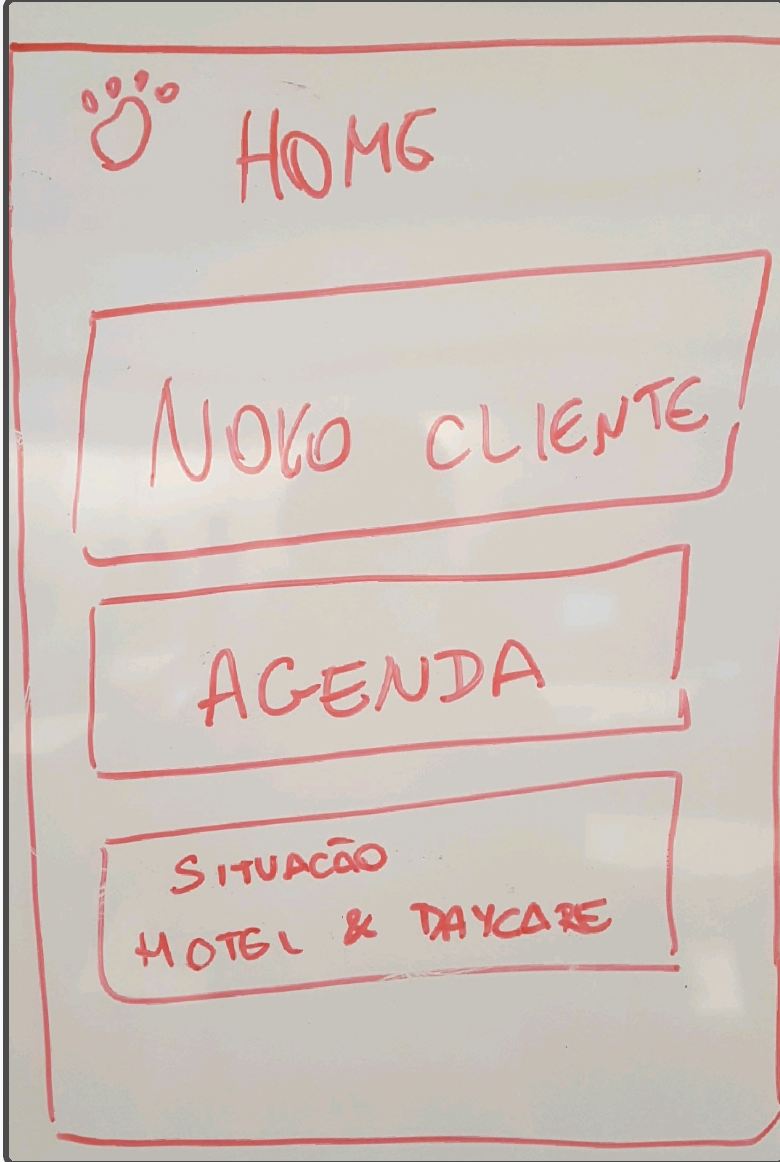 HOME
NOVO CLIENTE
AGENDA
SITUAÇÃO
HOTEL & DAYCARE